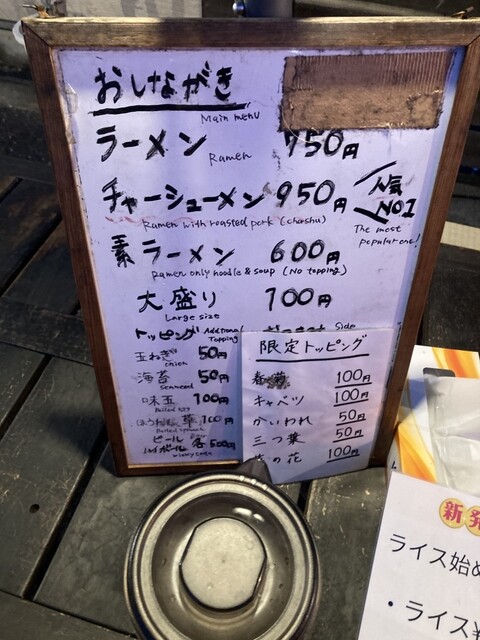 おしながき
Main menu
ラーメン 750円
Ramen
チャーシューメン 950円
人気 NO1
Ramen with roasted pork (charshu)
The most popular one!
素ラーメン 600円
Ramen only noodle & soup (No topping)
大盛り 100円
Large size
トッピング Additional Topping
Side
玉ねぎ 50円
onion
海苔 50円
seaweed
味玉 100円
Boiled egg
ほうれん草 100円
Boiled spinach
ビール
ハイボール 各500円
限定トッピング
春菊 100円
キャベツ 100円
かいわれ 50円
三つ葉 50円
の花 100円
新発
ライス始め
・ライス